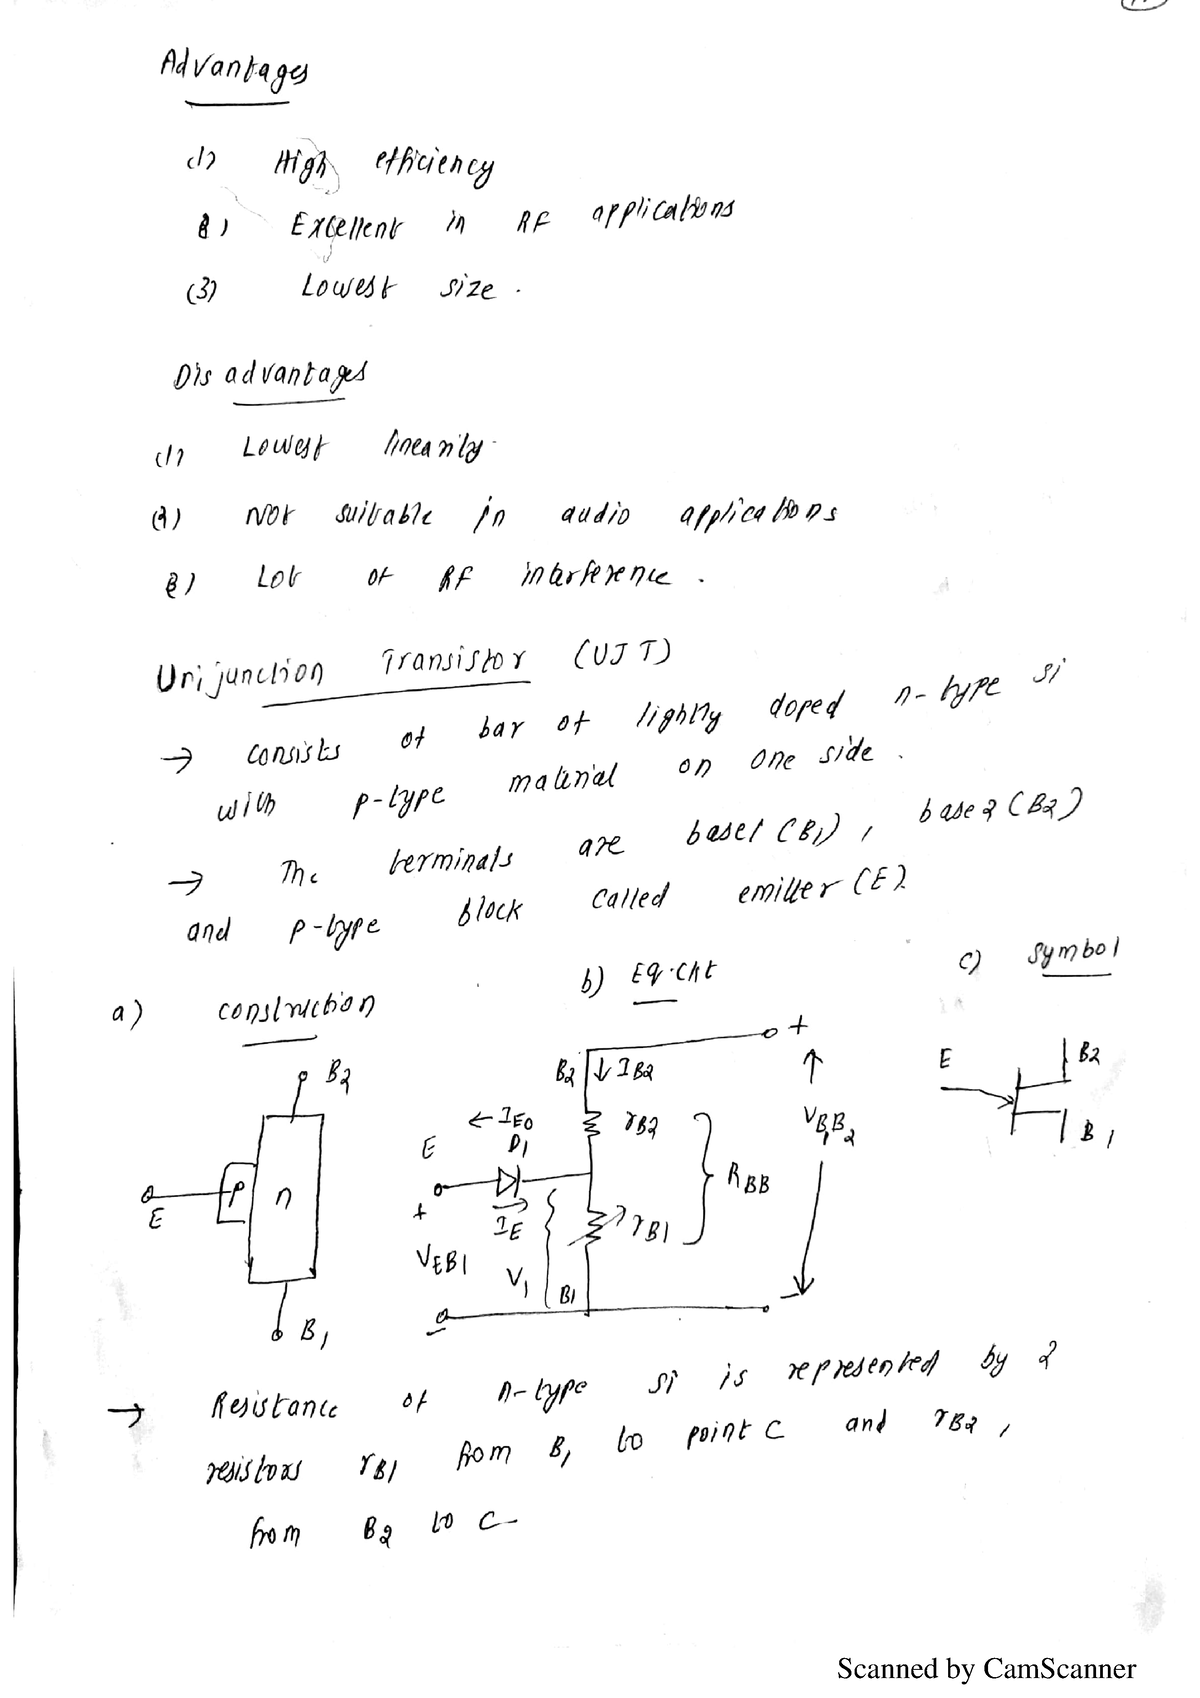 Advantages
(1) High efficiency
(2) Excellent in RF applications
(3) Lowest size.
Dis advantages
(1) Lowest linearity.
(2) Not suitable in audio applications
(3) Lot of RF interference.
Unijunction Transistor (UJT)
→ consists of bar of lightly doped n-type si
with p-type material on one side.
→ The terminals are base1 (B1), base2 (B2)
and p-type block called emitter (E).
a) construction
b) Eq.ckt
c) symbol
B2
P
n
E
B1
+
B2 ↓ IB2
← IE0
rB2
E
D1
RBB
VB1B2
+
IE
rB1
VEB1
V1
B1
−
E
B2
B1
→ Resistance of n-type si is represented by 2
resistors rB1 from B1 to point C and rB2,
from B2 to C
Scanned by CamScanner